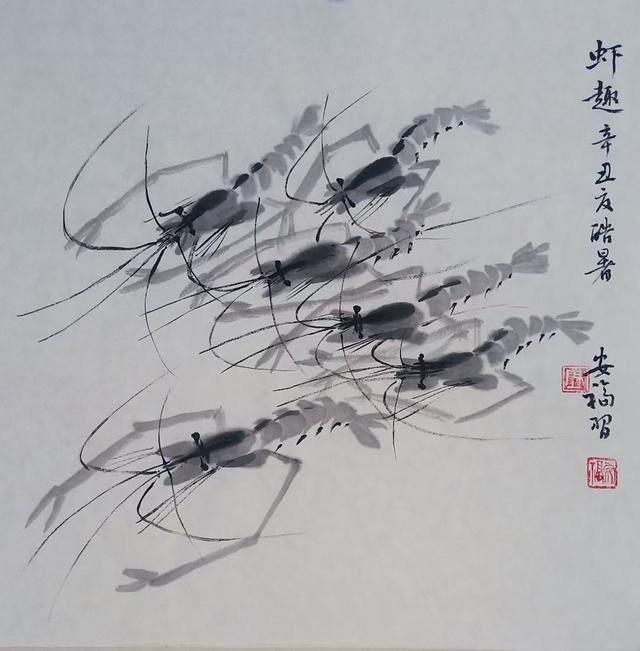 虾趣 辛丑夏酷暑 安福習